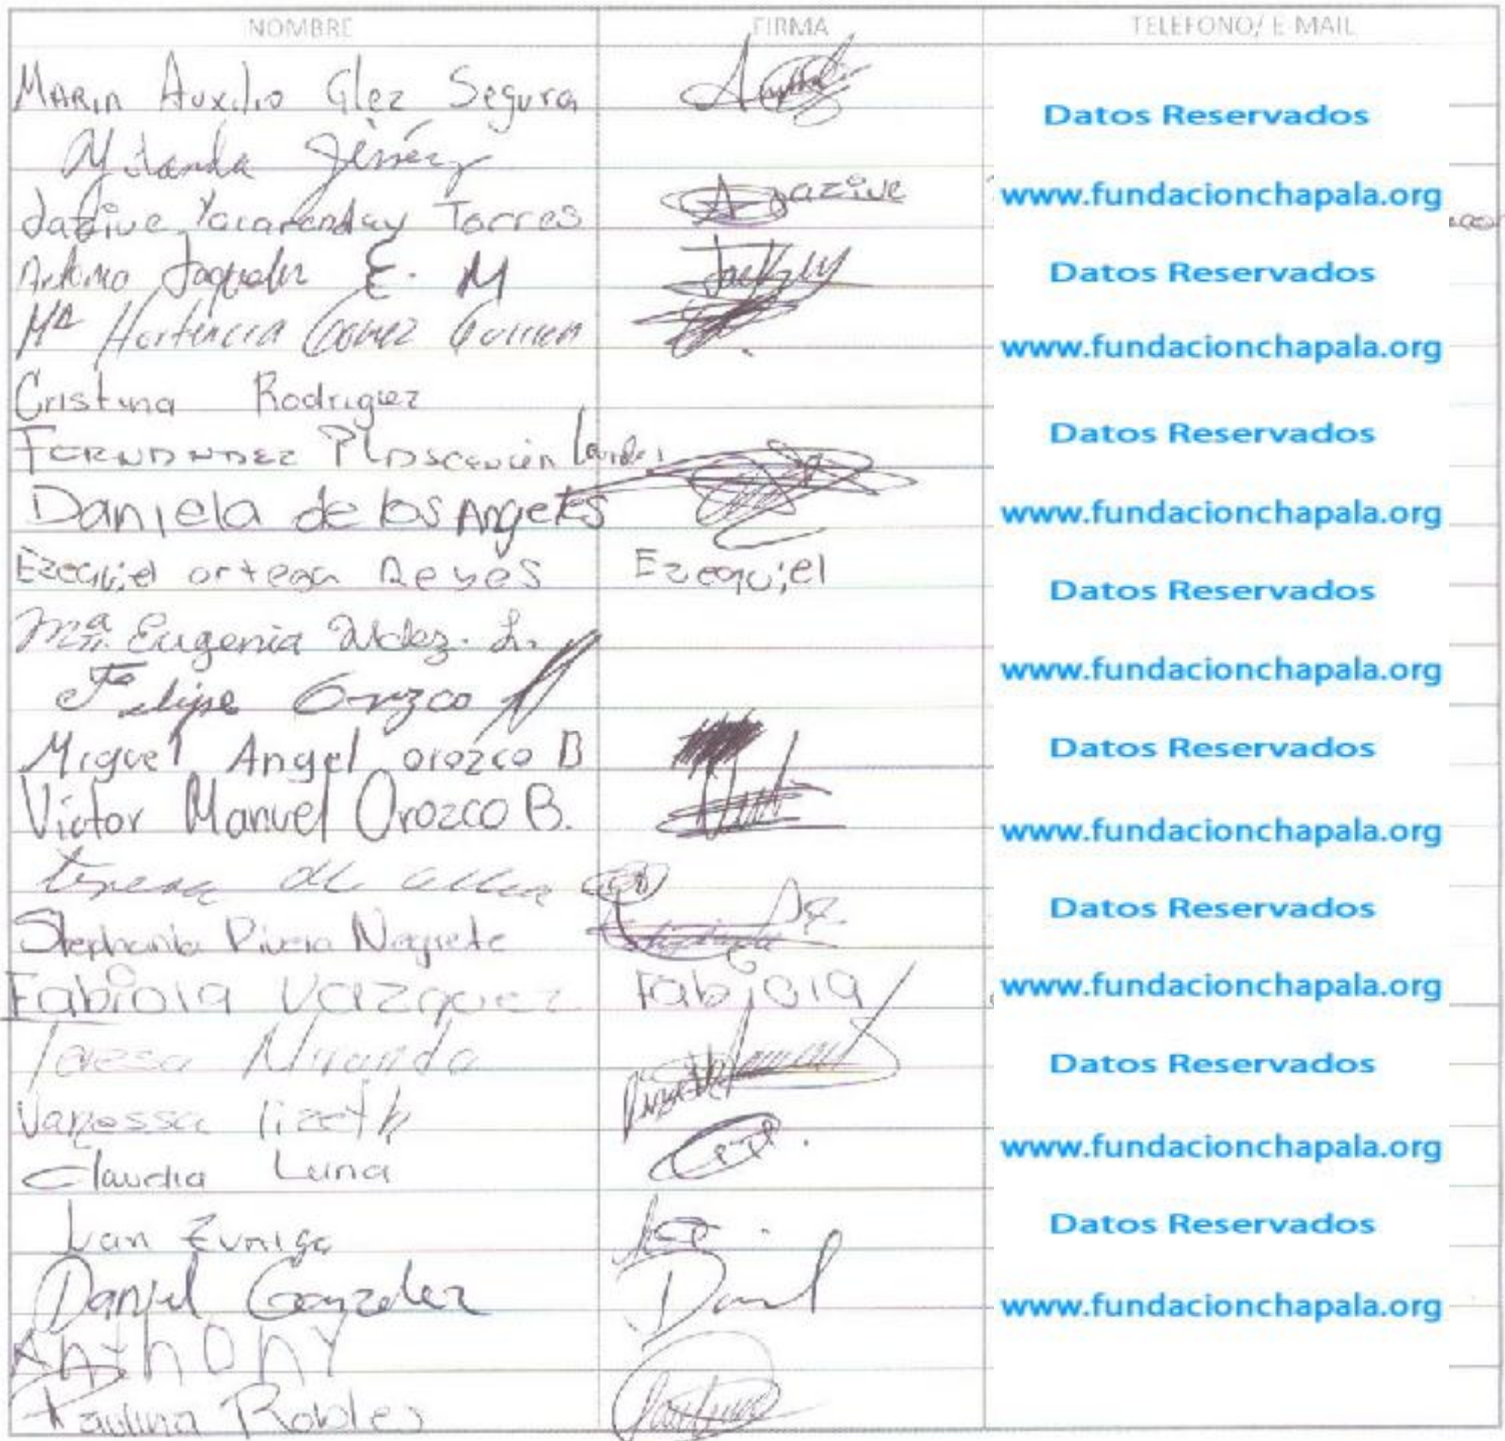 NOMBRE FIRMA TELEFONO/ E-MAIL
MARIA Auxilio Glez Segura
Datos Reservados
Yolanda Jiménez
Jazive Yacarenday Torres Jazive www.fundacionchapala.org
Antonio Jaquelin E. M Datos Reservados
Mª Hortencia Gomez www.fundacionchapala.org
Cristina Rodriguez
FERNANDEZ PLASCENCIA Lourdes Datos Reservados
Daniela de los Angeles www.fundacionchapala.org
Ezequiel ortega Reyes Ezequiel Datos Reservados
Ma. Eugenia L.
www.fundacionchapala.org
Felipe Orozco
Miguel Angel orozco B Datos Reservados
Victor Manuel Orozco B. www.fundacionchapala.org
teresa de
Stephania Rivera Negrete Datos Reservados
Fabiola Vazquez Fabiola www.fundacionchapala.org
Teresa Miranda Datos Reservados
Vanessa lizeth
Claudia Luna www.fundacionchapala.org
Ivan Zuniga Datos Reservados
Daniel Gonzalez Daniel www.fundacionchapala.org
Anthony
Paulina Robles